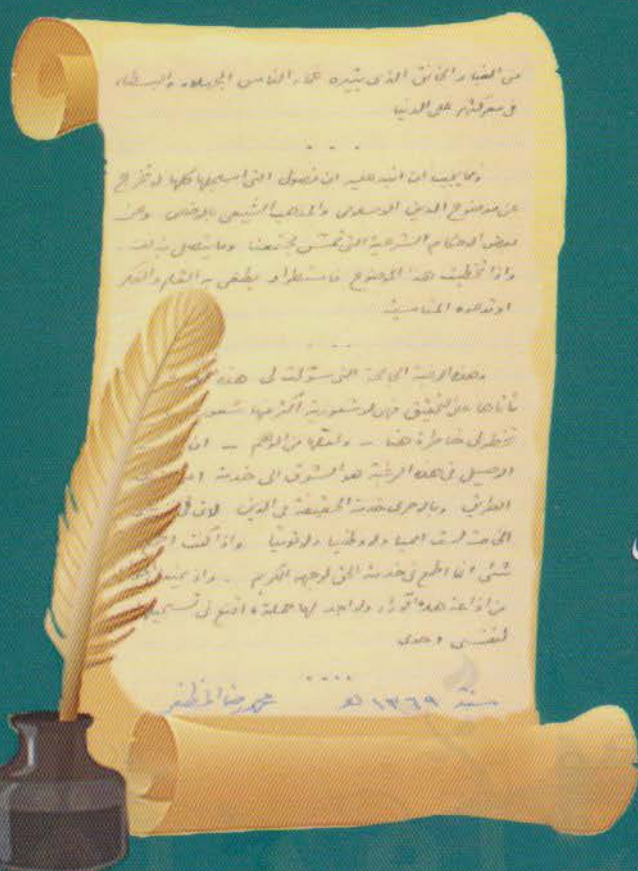 من الغبار الخانق الذي يثيره عادة الناس الجهلاء والبسطاء
في معركتهم على الدنيا
ومما يجب ان انبه عليه ان فصول التي اسجلها كلها لا تخرج
عن موضوع الدين الاسلامي والمذهب الشيعي بالاخص وعن
بعض الاحكام الشرعية التي تمس مجتمعنا وما يتصل بذلك .
واذا تخطيت هذا الموضوع فاستطرادا يطغى به القلم والفكر
او تدعوه المناسبة
وهذه الرغبة الجامحة التي سولت لي هذه
على التحقيق فهي لا شعورية أكثر منها شعور
تخطر لي خاطرة هنا ــ ولعلها من الوهم ــ ان
الاصيل في هذه الرغبة هو الشوق الى خدمة
الطريق وبالاحرى خدمة الحقيقة في الدين لاني
لست ولا وطنيا ولا قوميا واذا كنت
شئ انا اطمع في خدمة الحق لوجهه الكريم ــ واذ
من اذاعة هذه الآراء ولا اجد لها اقنع في
لنفسي وحدي
سنة ١٣٦٩ هـ محمد رضا المظفر